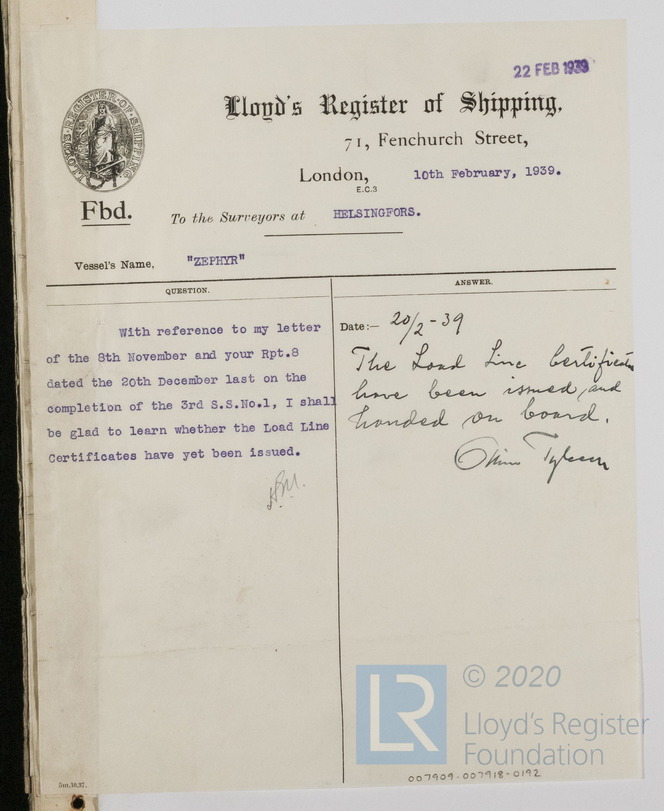 22 FEB 1939
LLOYD'S REGISTER OF SHIPPING
Lloyd's Register of Shipping,
71, Fenchurch Street,
London, 10th February, 1939.
E.C.3
Fbd.
To the Surveyors at HELSINGFORS.
Vessel's Name, "ZEPHYR"
QUESTION.
With reference to my letter
of the 8th November and your Rpt.8
dated the 20th December last on the
completion of the 3rd S.S.No.1, I shall
be glad to learn whether the Load Line
Certificates have yet been issued.
ANSWER.
Date:— 20/2-39
The Load Line Certificates
have been issued and
handed on board.
5m.10.37.
LR
© 2020
Lloyd's Register
Foundation
007909-007918-0192